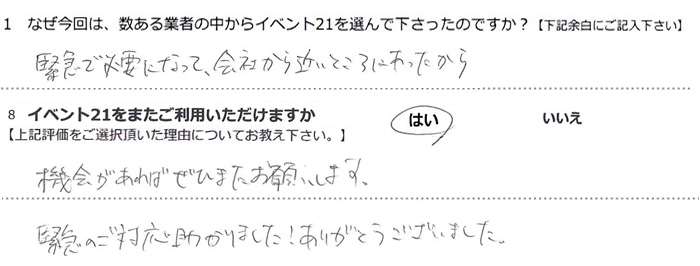 1 なぜ今回は、数ある業者の中からイベント21を選んで下さったのですか？【下記余白にご記入下さい】
緊急で必要になって、会社から近いところにあったから
8 イベント21をまたご利用いただけますか はい いいえ
【上記評価をご選択頂いた理由についてお教え下さい。】
機会があればぜひまたお願いします。
緊急のご対応助かりました！ありがとうございました。